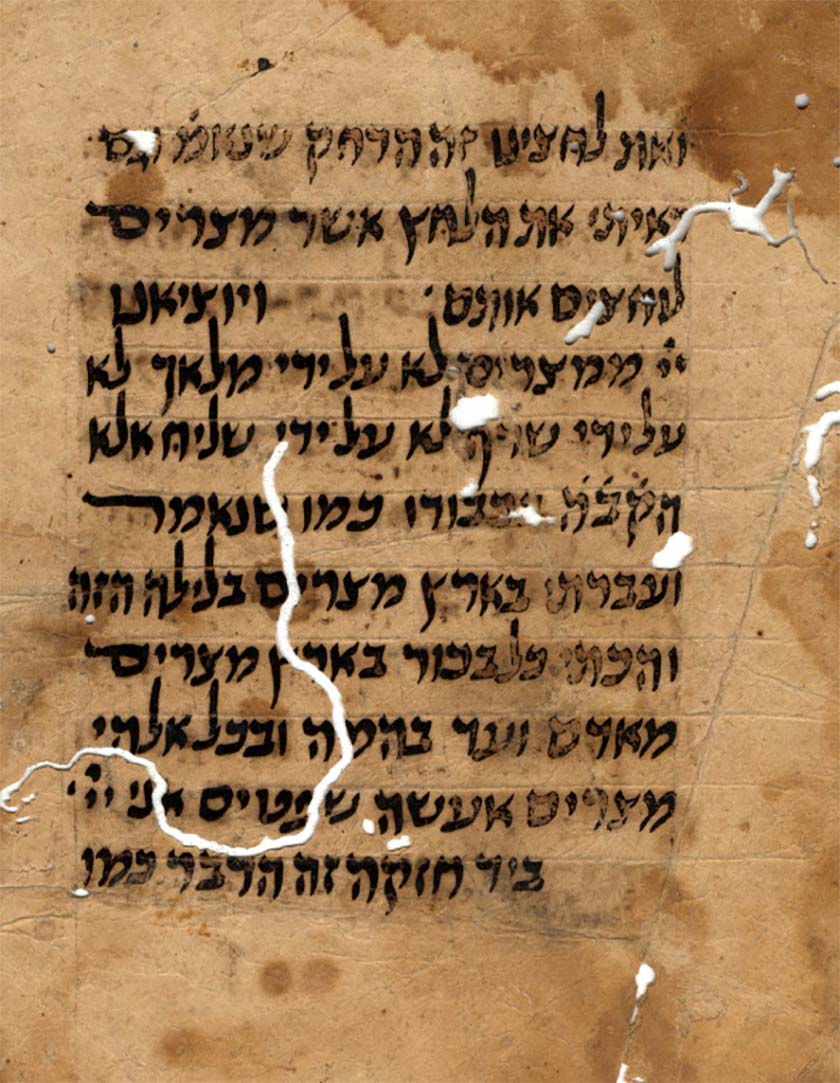 ואת לחצינו זה הדחק שנאמ' וגם
ראיתי את הלחץ אשר מצרים
לחצים אותם ויוציאנו
ייי ממצרים לא על ידי מלאך לא
על ידי שרף לא על ידי שליח אלא
הקבה בכבודו כמו שנאמר
ועברתי בארץ מצרים בלילה הזה
והכתי כל בכור בארץ מצרים
מאדם ועד בהמה ובכל אלהי
מצרים אעשה שפטים אני ייי
ביד חזקה זה הדבר כמו